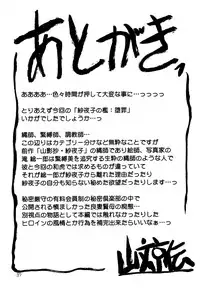 あとがき
ああああ…色々時間が押して大変な事に…っっっっ
とりあえず今回の「紗夜子の檻:堕罪」
いかがでしたでしょうか…っっ
縄師、緊縛師、調教師…
この辺りはカテゴリー分けなど無粋なことですが
前作「山影抄・紗夜子」の縄師であり絵師、写真家の
滝 絵一郎は緊縛美を追究する生粋の縄師のような人で
彼と今回の和虎では求めるものが違っていて
それが絵一郎が紗夜子から離れた理由だったり
紗夜子の自分も知らない秘めた欲望だったりします…っ
秘密厳守の有料会員制の秘密倶楽部の中で
公開される慎ましかった良妻賢母の痴態…
別視点の物語として本編では触れなかったりした
ヒロインの風情とか行為を補完出来たらいいなぁ…っ